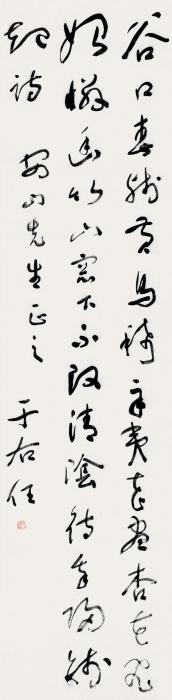 谷口春殘黃鳥稀辛夷花盡杏花飛
始憐幽竹山窗下不改清陰待我歸錢
起詩 山先生正之 于右任